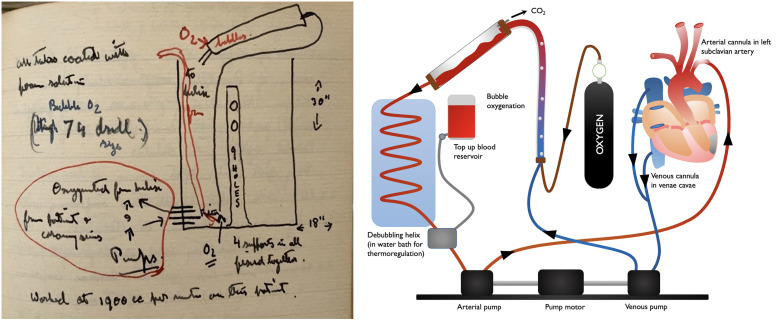 O2 → bubbles.
all tubes coated with
foam solution
Bubble O2
74 drill
size
to
helix
30"
9 HOLES
Oxygenated from helix
from patient &
coronary sinus
Pumps
O2
4 supports in all
joined together.
18"
Worked at 1900 cc per minute on this patient.
CO2
Arterial cannula in left
subclavian artery
Bubble
oxygenation
OXYGEN
Top up blood
reservoir
Venous cannula
in venae cavae
Debubbling helix
(in water bath for
thermoregulation)
Arterial pump
Pump motor
Venous pump